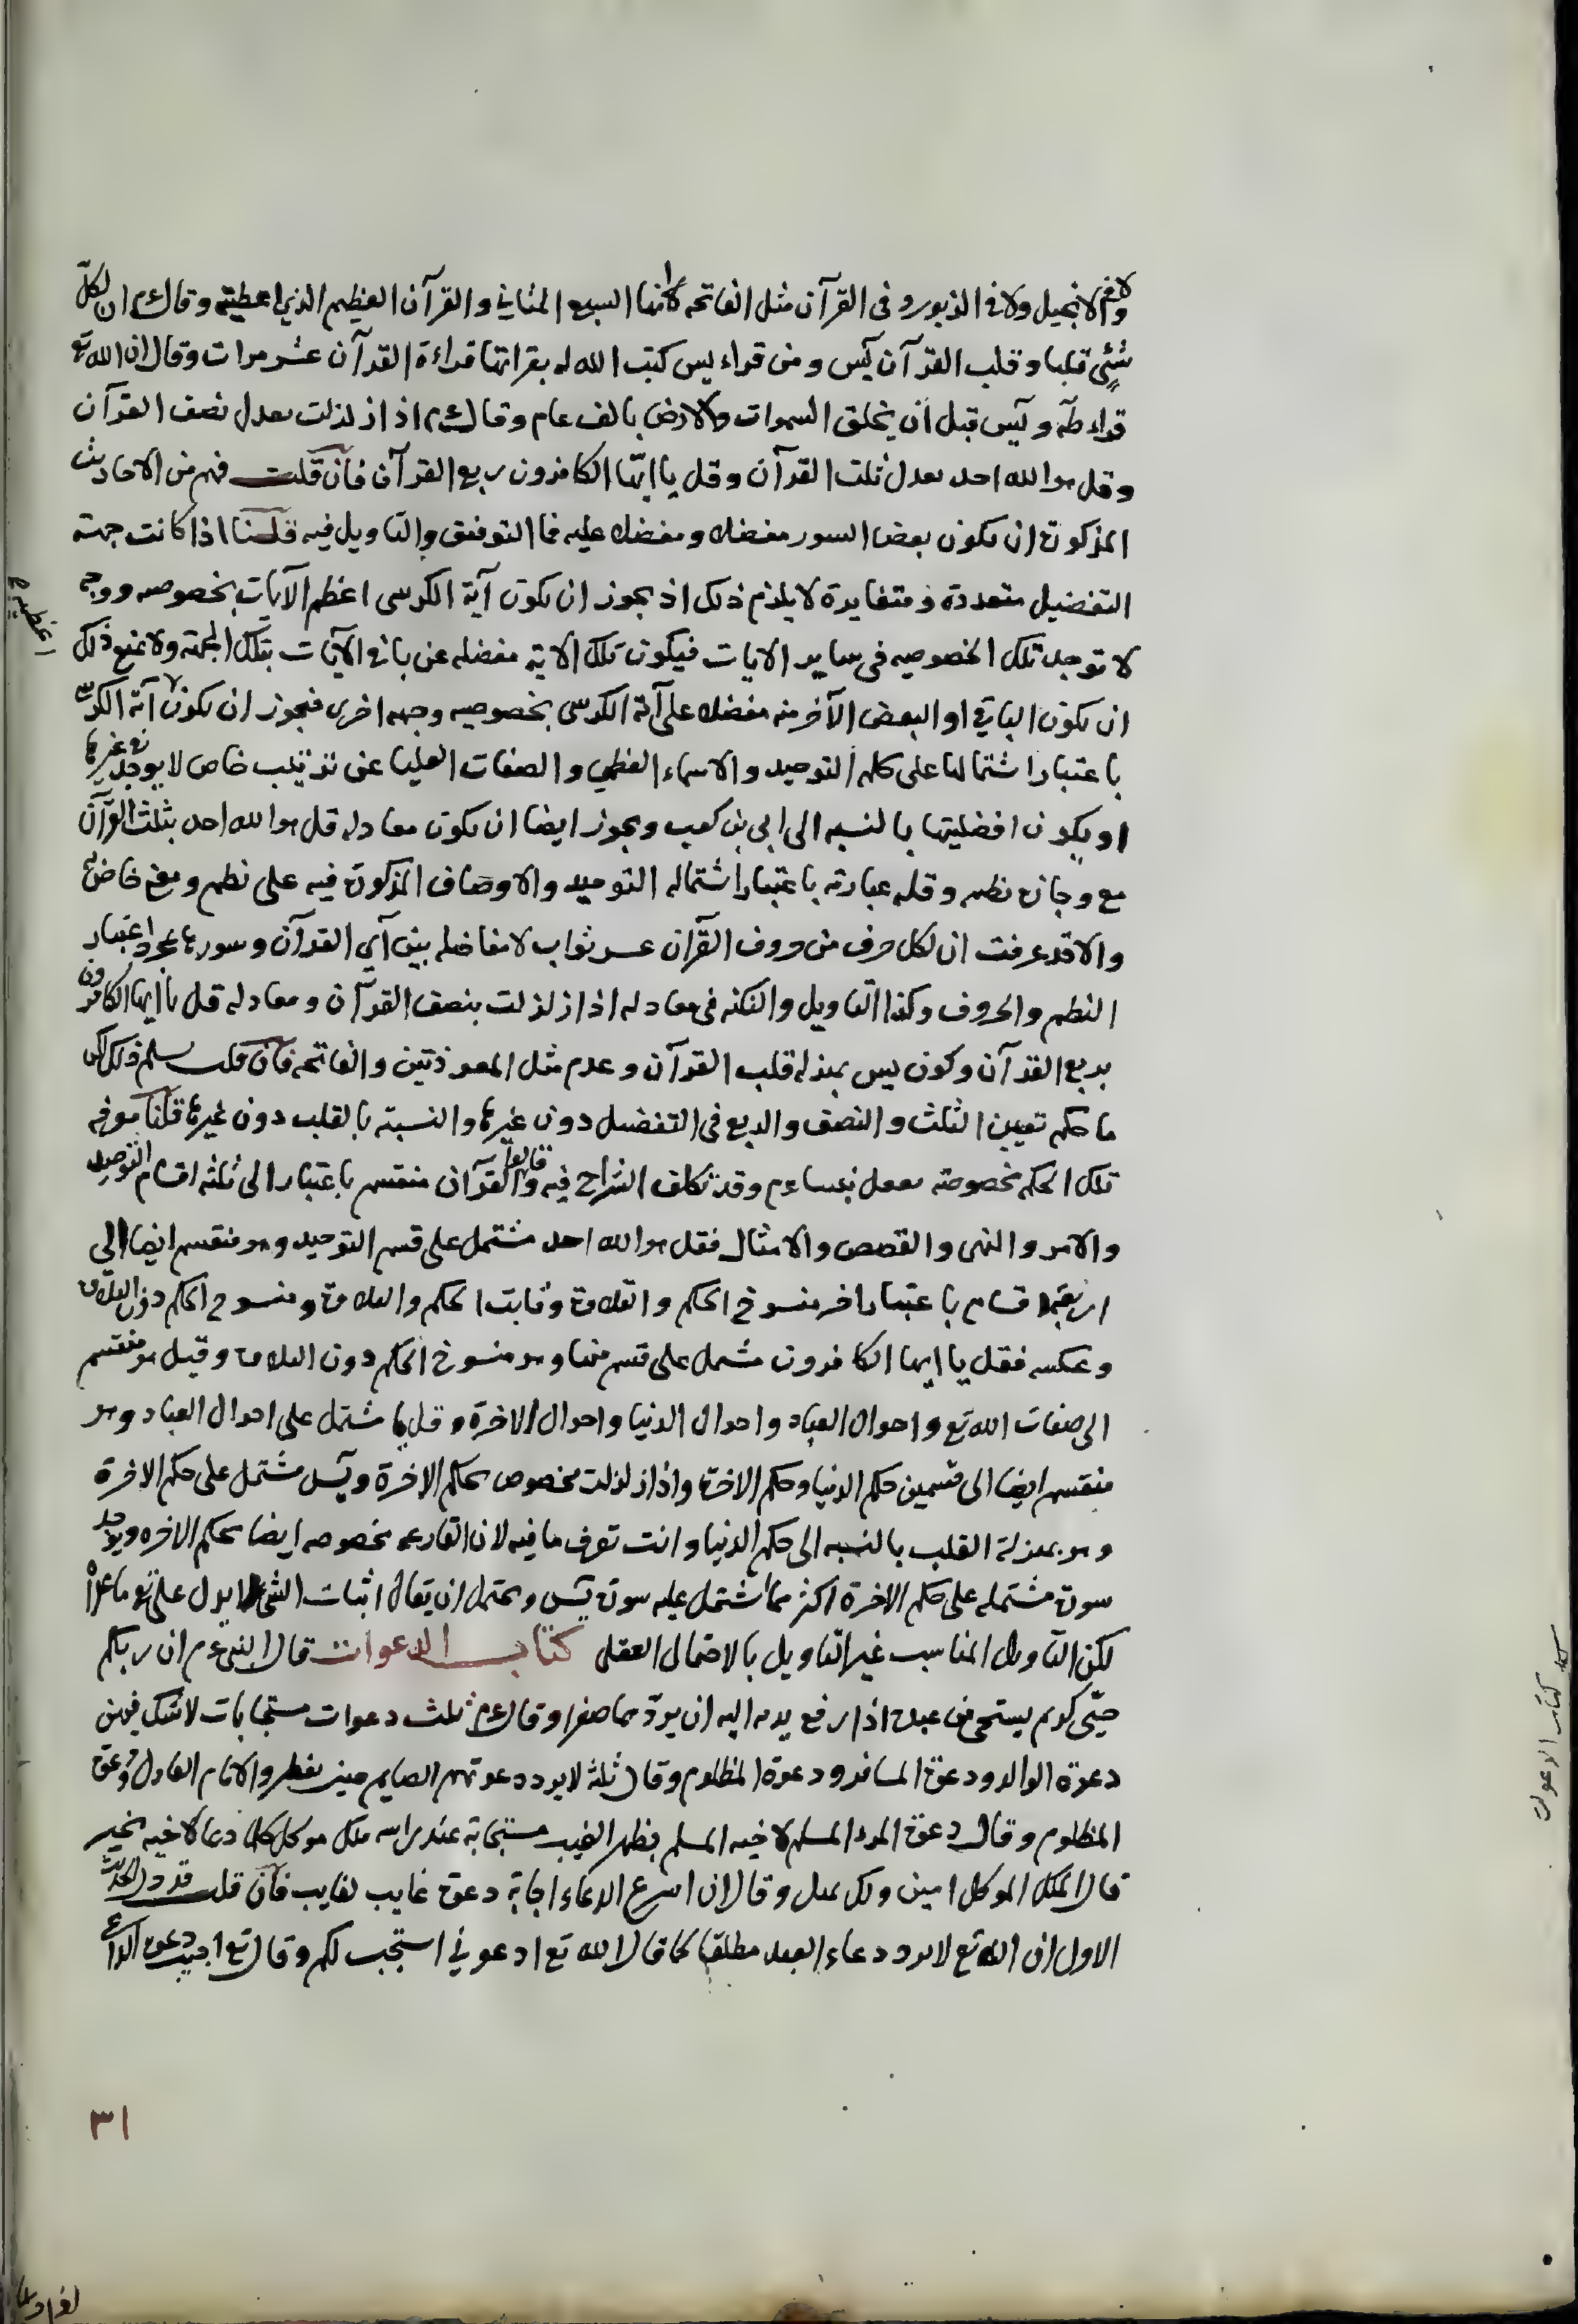 ولا في الانجيل ولا في الزبور و في القرآن مثل الفاتحه لانها السبع المثاني و القرآن العظيم الذي اعطيته وقال ع م ان لكل
شئ قلبا وقلب القرآن يس و من قراء يس كتب الله له بقراتها قراءة القرآن عشر مرات وقال ان الله تع
قراء طه و يس قبل ان يخلق السموات والارض بالف عام وقال ع م اذا زلزلت يعدل نصف القرآن
وقل هو الله احد يعدل ثلث القرآن وقل يا ايها الكافرون ربع القرآن فان قلت فهم من الاحاديث
المذكورة ان يكون بعض السور مفضلا ومفضلا عليه فما التوفيق والتاويل فيه قلنا اذا كانت جهة
التفضيل متعددة ومتغايرة لا يلزم ذلك اذ يجوز ان يكون آية الكرسى اعظم الآيات بخصوصه ووجه
لا توجد تلك الخصوصيه فى ساير الايات فيكون تلك الاية مفضله عن باقي الآيات بتلك الجهة ولا يمنع ذلك
ان يكون الباقي او البعض الآخر منه مفضلا على آية الكرسى بخصوصيه وجهه اخرى فيجوز ان يكون آية الكرسى
باعتبار اشتمالها على كلمه التوحيد والاسماء العظمى والصفات العليا عن ترتيب خاص لا يوجد في غيرها
او يكون افضليتها بالنسبه الى ابى بن كعب ويجوز ايضا ان يكون معادله قل هو الله احد بثلث القرآن
مع وجازة نظمه وقله عبارته باعتبار اشتماله التوحيد والاوصاف المذكورة فيه على نظم و معنى خاص
والا قد عرفت ان لكل حرف من حروف القرآن عشر ثواب لا مفاضله بين آي القرآن وسورها بمجرد اعتبار
النظم والحروف وكذا التاويل والنكته فى معادله اذا زلزلت بنصف القرآن ومعادله قل يا ايها الكافرون
بربع القرآن وكون يس بمنزله قلب القرآن وعدم مثل المعوذتين والفاتحه فان قلت سلم ذلك لكن
ما حكم تعيين الثلث والنصف والربع فى التفضيل دون غيرها والنسبته بالقلب دون غيرها قلنا معرفه
تلك الحكم مخصوصة بعلم وقد تكلف الشراح فيه وقالوا القرآن منقسم باعتبار الى ثلثه اقسام التوحيد
والامر والنهى والقصص والامثال فقل هو الله احد مشتمل على قسم التوحيد وهو منقسم ايضا الى
اربعة اقسام باعتبار اخر منسوخ الحكم والتلاوة وثابت الحكم والتلاوة ومنسوخ الحكم دون التلاوة
وعكسه فقل يا ايها الكافرون مشتمل على قسم منها وهو منسوخ الحكم دون التلاوة وقيل هو منقسم
الى صفات الله تع واحوال العباد واحوال الدنيا واحوال الاخرة وقل يا مشتمل على احوال العباد وهو
منقسم ايضا الى قسمين حكم الدنيا وحكم الاخرة واذا زلزلت مخصوص بحكم الاخرة ويس مشتمل على حكم الاخرة
وهو بمنزلة القلب بالنسبه الى حكم الدنيا وانت تعرف ما فيه لان القارعه مخصوصه ايضا بحكم الاخره ويوجد
سورة مشتمله على حكم الاخرة اكثر مما اشتمل عليه سورة يس ويحتمل ان يقال اثبات الشئ لا يدل على نفى ما عداه
لكن التاويل المناسب غير التاويل بالاحتمال العقلى كتاب الدعوات قال النبى ع م ان ربكم
حيى كريم يستحى من عبده اذا رفع يديه اليه ان يردهما صفرا وقال ع م ثلث دعوات مستجابات لا شك فيهن
دعوة الوالد ودعوة المسافر ودعوة المظلوم وقال ثلثه لا يرد دعوتهم الصايم حين يفطر والامام العادل ودعوة
المظلوم وقال دعوة المرء المسلم لاخيه المسلم بظهر الغيب مستجابة عند راسه ملك موكل كلما دعا لاخيه بخير
قال الملك الموكل امين ولك بمثل وقال ان اسرع الدعاء اجابة دعوة غايب لغايب فان قلت قد دل الحديث
الاول ان الله تع لا يرد دعاء العبد مطلقا كما قال الله تع ادعوني استجب لكم وقال تع اجيب دعوة الداع
كتاب الدعوات
٣١